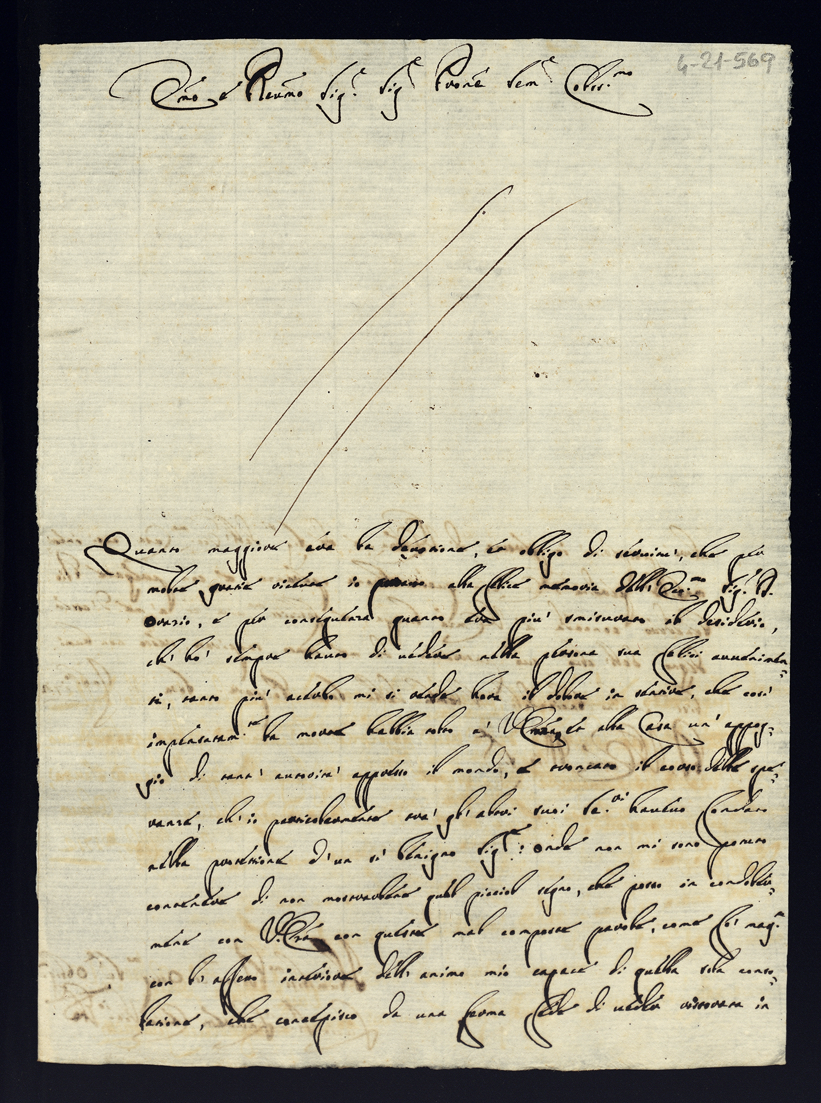 4-21-569
Em.mo e Reu.mo Sig.r Sig.r Prone sem.e Coll.mo
Quanto maggiore era la deuotione, et obligo di seruirui, che per
molte gratie riceuute io alla felice memoria dell' Ecc.mo Sig.r D.
Oratio, e per conseguenza quanto era più smisurato il desiderio,
ch' hò sempre hauuto di uedere nella persona sua felici auuenimen=
ti, tanto più acerbo mi si rende hora il dolore in sentire, che così
impensatam.te la morte habbia tolto à V. Em.za et alla Casa un' appog=
gio di tant' autorità appresso il mondo, e troncato il corso delle spe=
ranze, ch' io particolarmente trà gl' altri suoi se.ri haueuo fondato
nella protettione d' un sì benigno Sig.re: Onde non mi sono potuto
contenere di non mostrarlene quel picciol segno, che posso in condoler=
mene con V. Em.za con queste mal composte parole, come fò mag.te
con l' affetto interiore dell' animo mio capace di quella sola conso=
latione, che concepisco da una ferma fede di ueder ristorata in